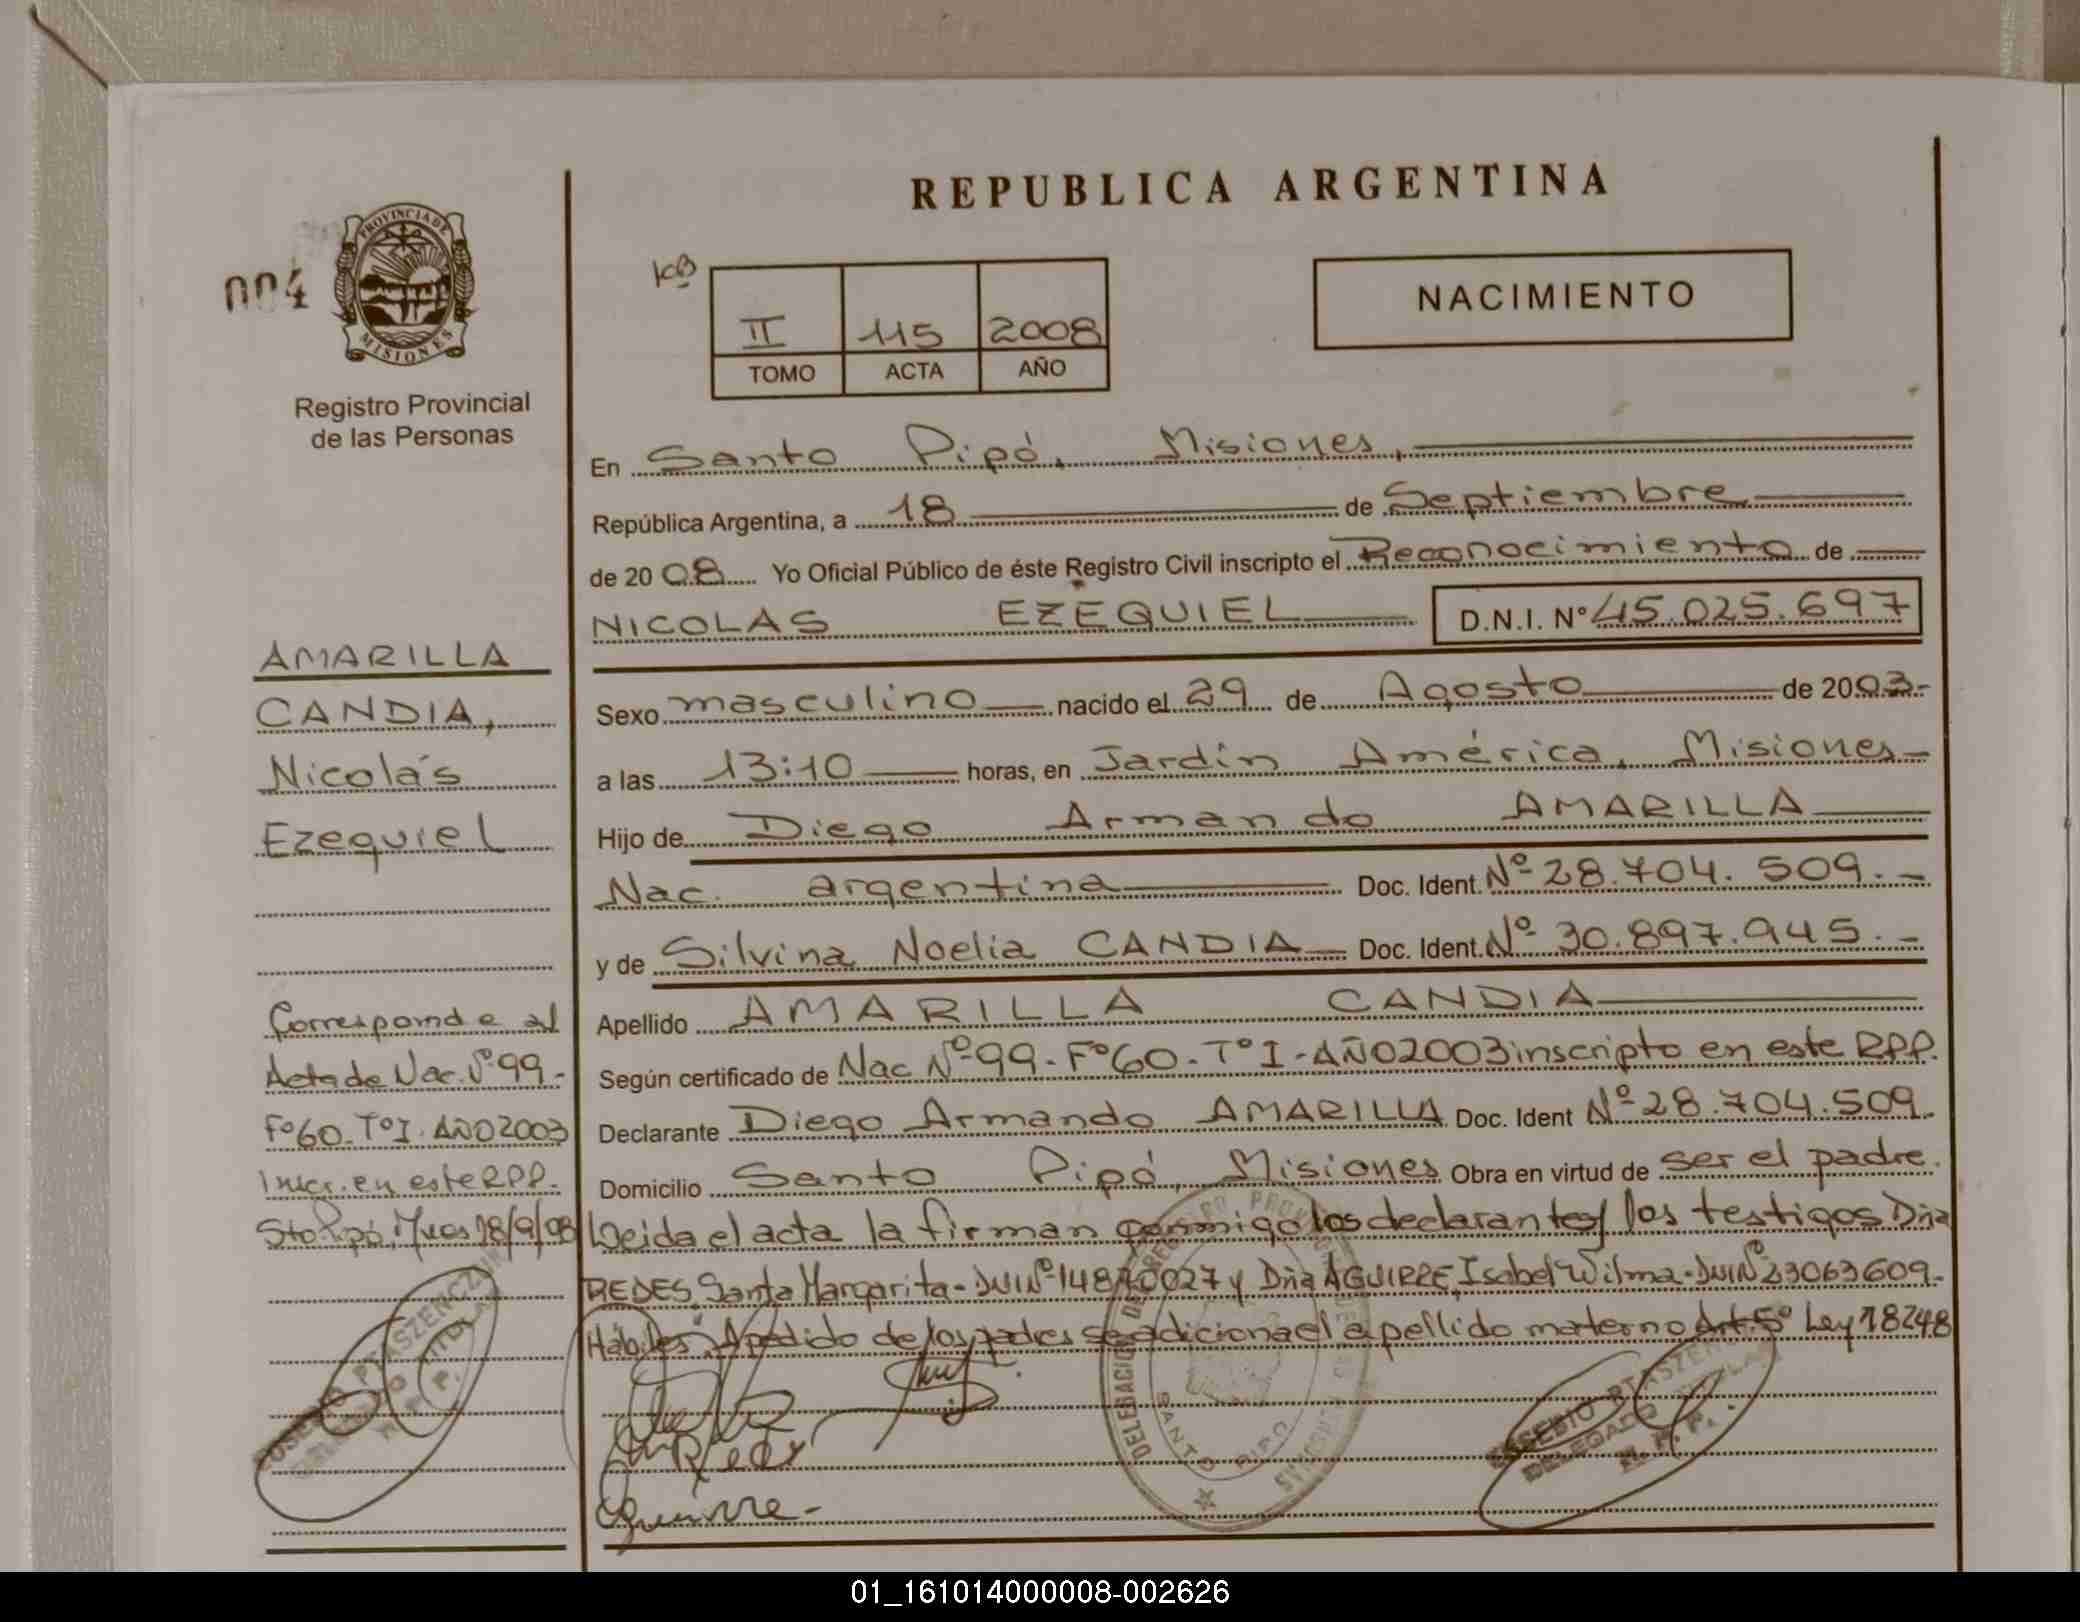 REPUBLICA ARGENTINA
004
PROVINCIA DE
MISIONES
Registro Provincial
de las Personas
II 115 2008
TOMO ACTA AÑO
NACIMIENTO
En Santo Pipó, Misiones,
República Argentina, a 18 de Septiembre
de 2008 Yo Oficial Público de éste Registro Civil inscripto el Reconocimiento de
NICOLAS EZEQUIEL D.N.I. Nº 45.025.697
Sexo masculino nacido el 29 de Agosto de 2003.-
a las 13:10 horas, en Jardín América, Misiones-
Hijo de Diego Armando AMARILLA
Nac. argentina Doc. Ident. Nº 28.704.509.-
y de Silvina Noelia CANDIA Doc. Ident. Nº 30.897.945.-
Apellido AMARILLA CANDIA
Según certificado de Nac Nº 99-Fº60-TºI-AÑO2003 inscripto en este RPP.
Declarante Diego Armando AMARILLA Doc. Ident Nº 28.704.509.
Domicilio Santo Pipó, Misiones Obra en virtud de ser el padre.
Leida el acta la firman conmigo los declarantes/ los testigos Dña
REDES, Santa Margarita- DNINº y Dña AGUIRRE, Isabel Wilma-DNINº23063609-
Hábiles, Apedido de los padres se adiciona el apellido materno Art.5º Ley 18248
AMARILLA
CANDIA,
Nicolás
Ezequiel
Corresponde al
Acta de Nac. Nº99-
Fº60-TºI-AÑO2003
Inscr. en este RPP.
Sto Pipó, Mnes 18/9/08
EUSEBIO PTASZENCZUK
R. P. P.
DELEGACION
SANTO PIPO
MISIONES
EUSEBIO
DELEGADO TITULAR
R. P. P.
01_161014000008-002626